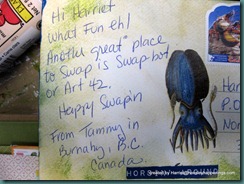 Hi Harriet
What Fun eh!
Another great place
to Swap is Swap-bot
or Art 42.
Happy Swapin
From Tammy in
Burnaby, B.C.
Canada.
Har
P.O.
No
HORS